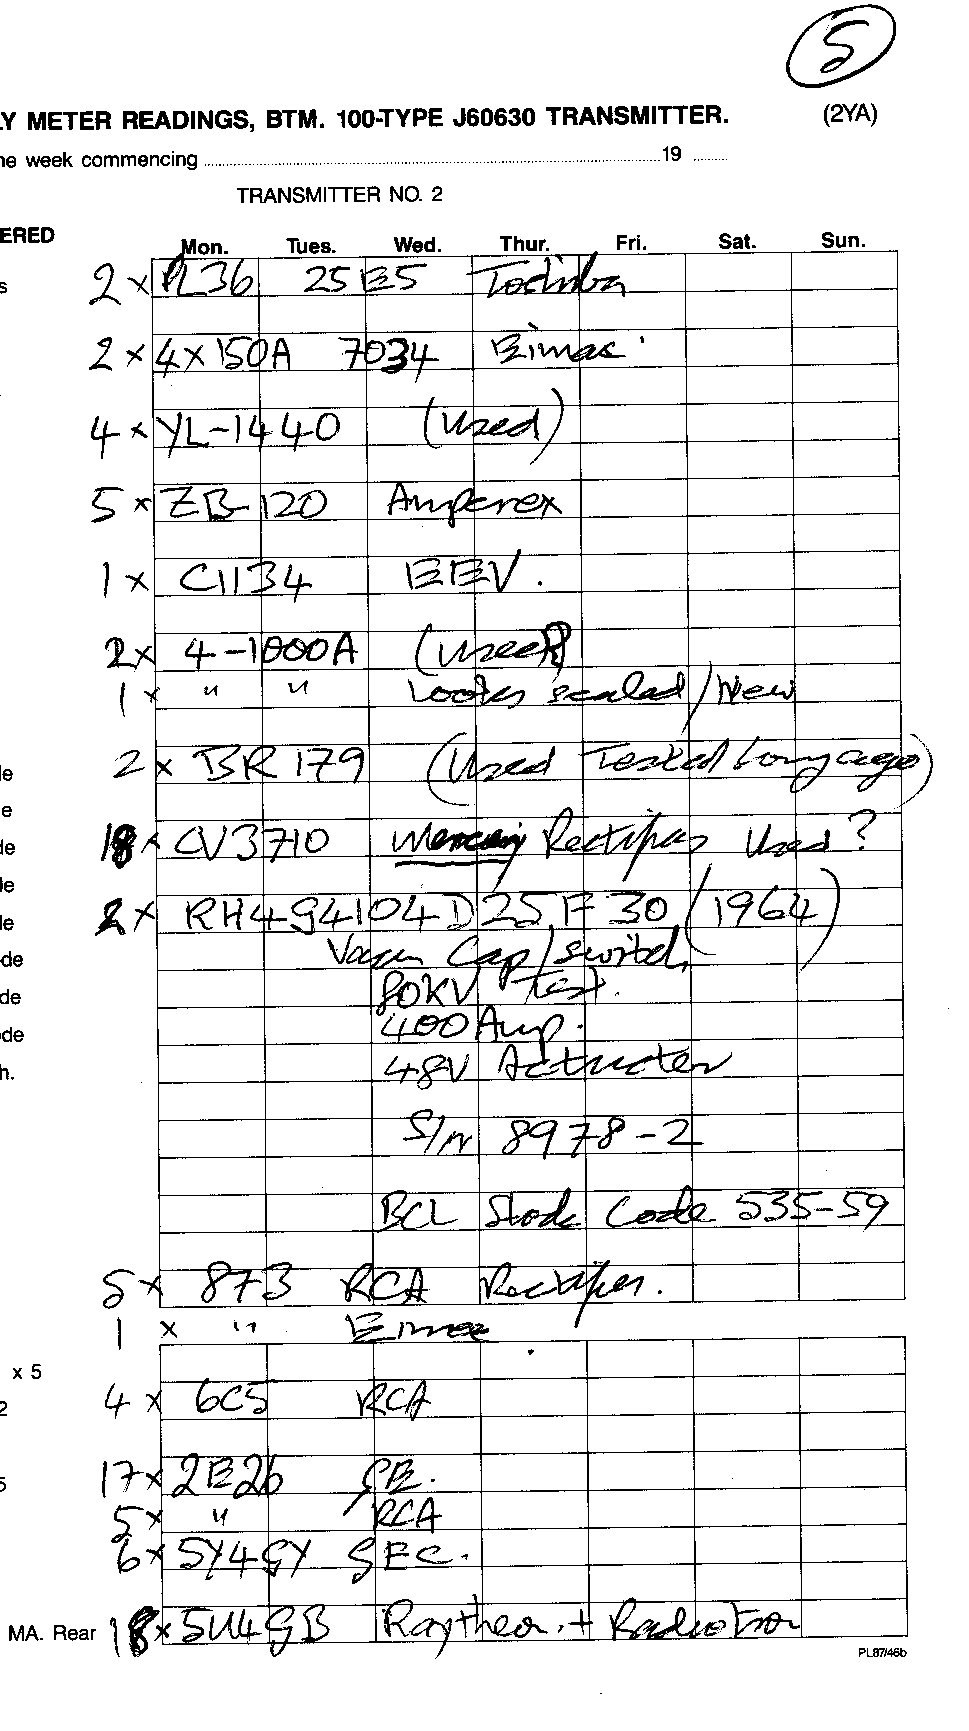 5
LY METER READINGS, BTM. 100-TYPE J60630 TRANSMITTER. (2YA)
he week commencing 19
TRANSMITTER NO. 2
ERED
Mon. Tues. Wed. Thur. Fri. Sat. Sun.
s 2 x PL36 25E5 Toshiba
2 x 4X150A 7034 Eimac.
4 x YL-1440 (Used)
5 x ZB-120 Amperex
1 x C1134 EEV.
2x 4-1000A (Used)
1 x " " Looks sealed/New
de 2 x BR179 (Used Tested Long ago)
e
de 18 x CV3710 Mercury Rectifiers Used?
de
de 2 x RH4G4104D25F30 (1964)
ode Vacum Cap/switch
de 80KV Test.
ode 400 Amp.
h. 48V Actuctor
S/N 8978-2
BCL Stock Code 535-59
5 x 873 RCA Rectifier.
1 x " Eimac
x 5
2 4 x 6C5 RCA
5 17 x 2E26 GE.
5 x " RCA
6 x 5Y4GY GEC.
MA. Rear 18 x 5U4GB Raytheon + Radiotron
PL87/46b